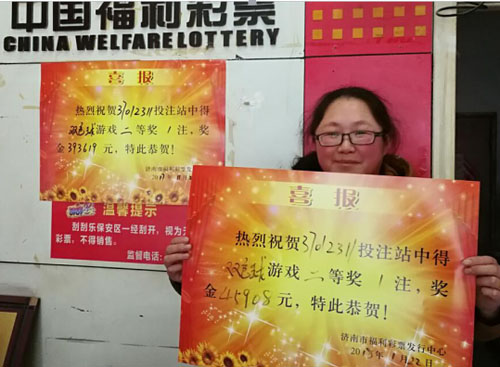 中国福利彩票
CHINA WELFARE LOTTERY
喜报
热烈祝贺37012311投注站中得
双色球游戏二等奖1注,奖
金393619元,特此恭贺!
济南市福利彩票发行中心
温馨提示
刮刮乐保安区一经刮开,视为
彩票,不得销售。
监督电话:
喜报
热烈祝贺37012311投注站中得
双色球游戏二等奖1注,奖
金45908元,特此恭贺!
济南市福利彩票发行中心